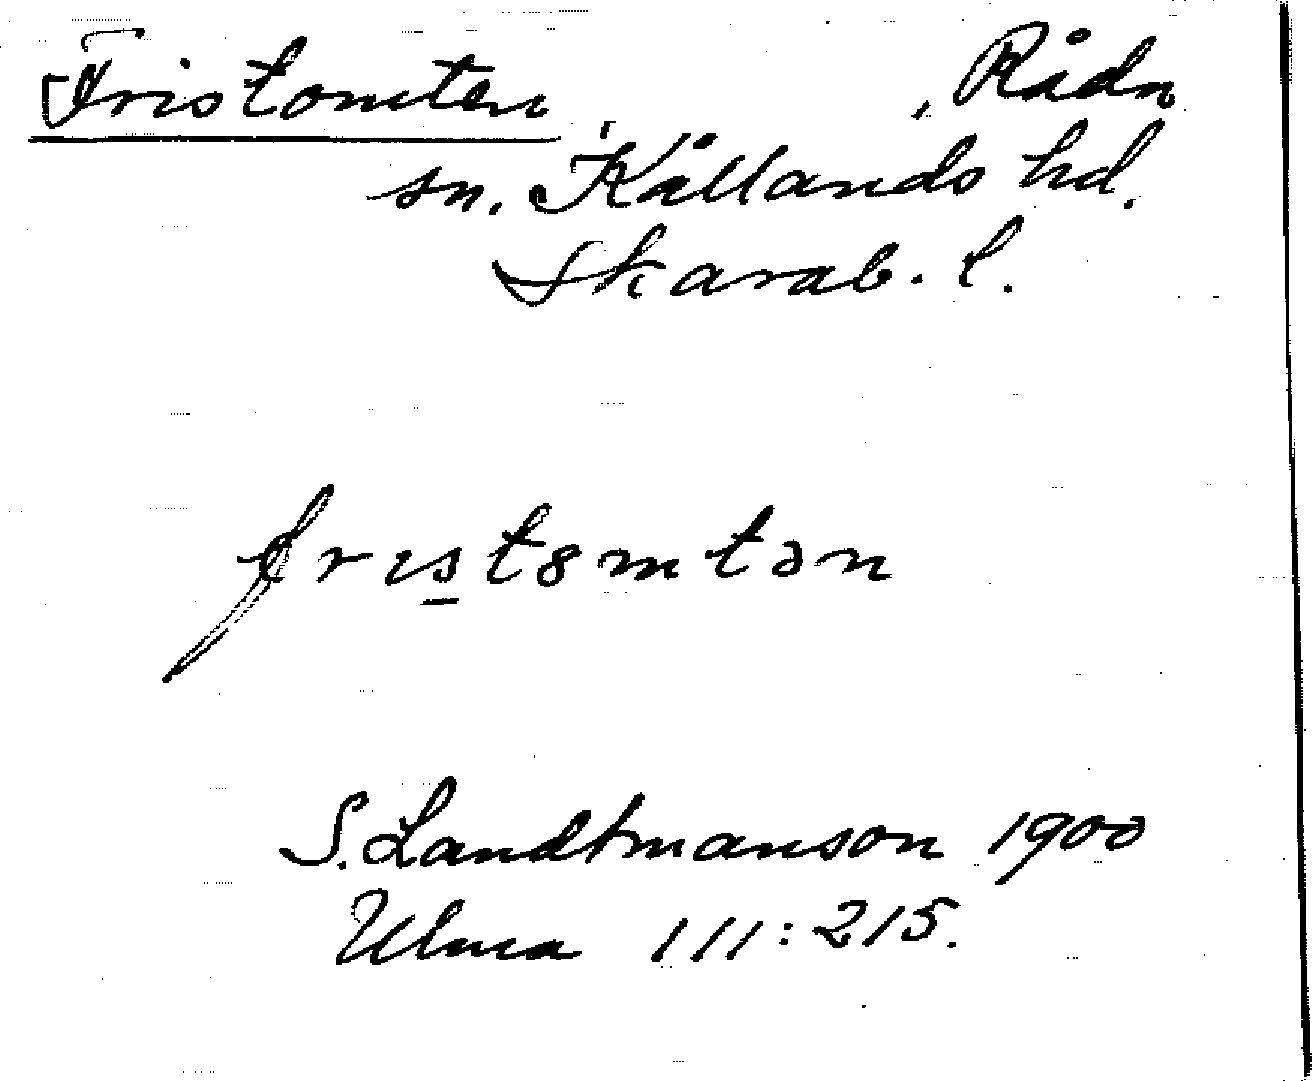 Fristomten , Rådn
sn. Kållands hd.
Skarab. l.
fristomtən
S. Landtmanson 1900
Ulma 111:215.